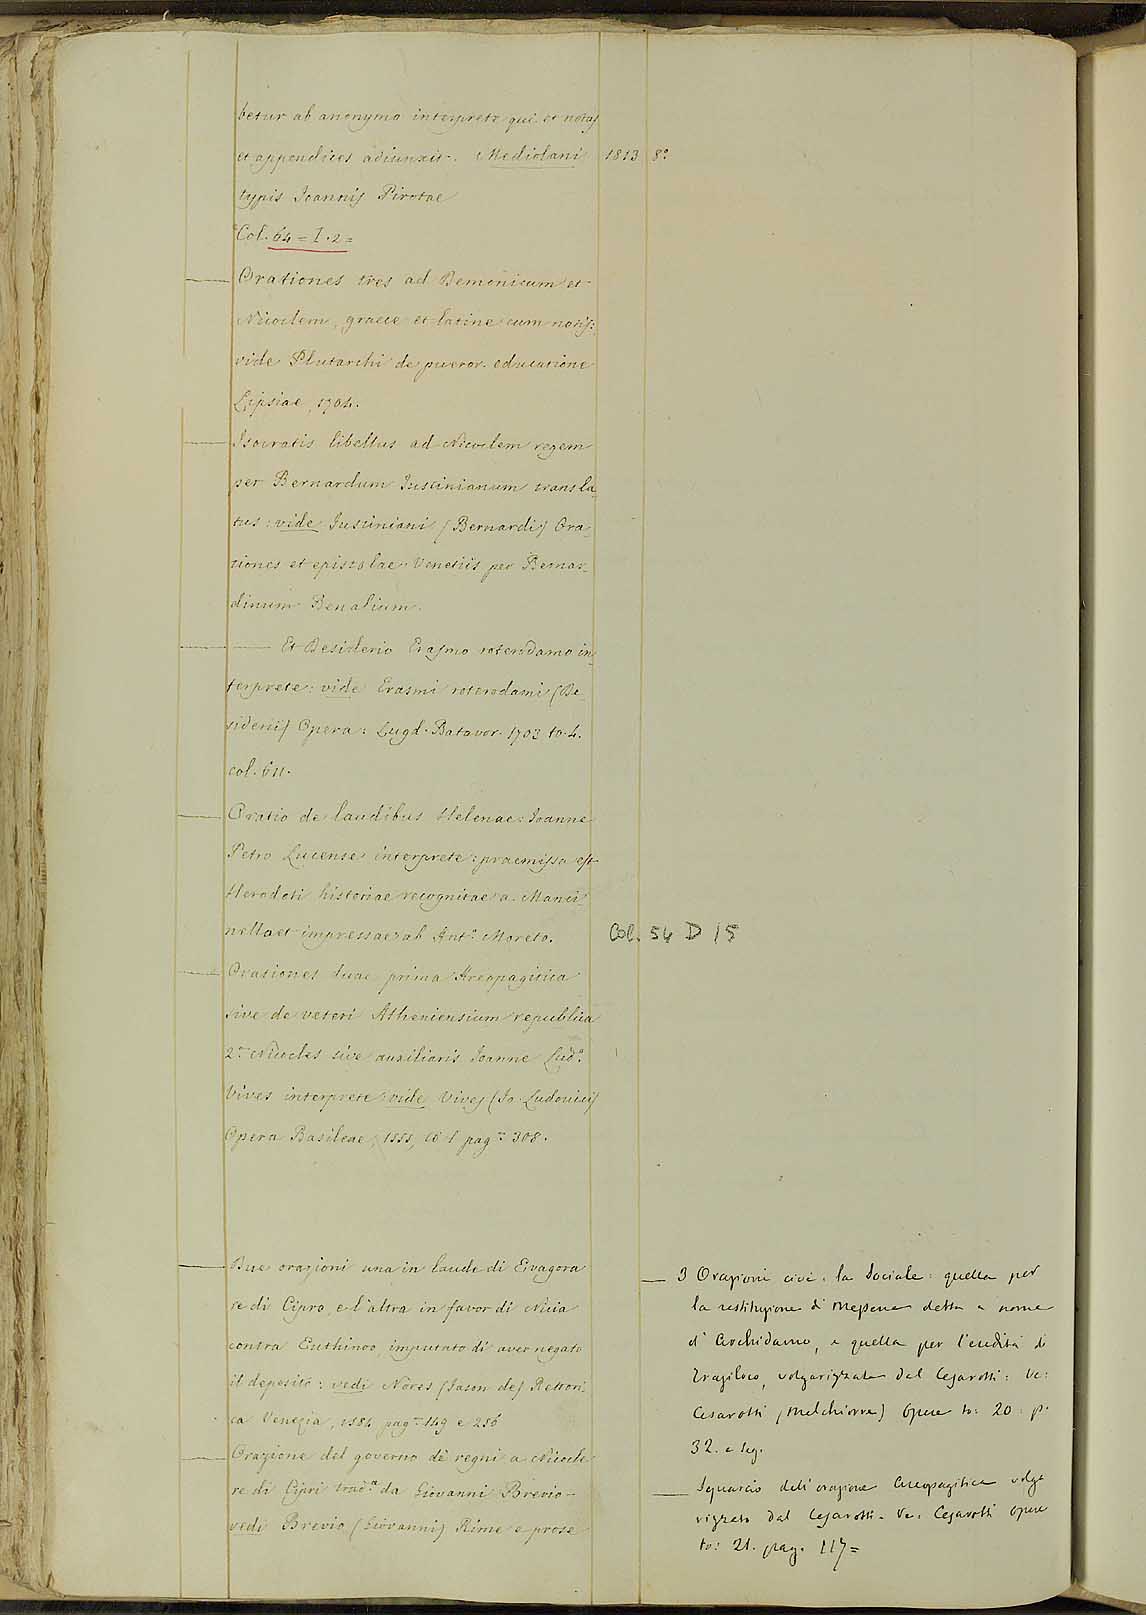 betur ab anonymo interprete qui et notas
et appendices adiunxit. Mediolani 1813 8.°
typis Ioannis Pirotae
Col. 64 = I. 2 =
— Orationes tres ad Demonicum et
Nicoclem, graece et latine cum notis:
vide Plutarchi de pueror. educatione
Lipsiae, 1704.
— Isocratis libellus ad Nicoclem regem
per Bernardum Iustinianum transla-
tus: vide Iustiniani (Bernardi) Ora-
tiones et epistolae Venetiis per Bernar-
dinum Benalium.
— — Et Desiderio Erasmo roterodamo in-
terprete: vide Erasmi roterodami (De-
siderii) Opera: Lugd. Batavor. 1703 to. 4.
col. 611.
— Oratio de laudibus Helenae: Ioanne
Petro Lucense interprete: praemissa est
Herodoti historiae recognitae a Manci-
nello et impressae ab Ant.° Moreto. Col. 54 D 15
— Orationes duae prima Areopagitica
sive de veteri Atheniensium republica
2.a Nicocles sive auxiliaris Ioanne Lud.°
Vives interprete: vide Vives (Io. Ludovici)
Opera Basileae, 1555, to. 1 pag.a 308.
— Due orazioni una in laude di Evagora
re di Cipro, e l'altra in favor di Nicia
contra Euthinoo, imputato di aver negato
il deposito: vedi Nores (Iason de) Rettori-
ca Venezia, 1584 pag.a 149 e 256
— Orazione del governo de regni a Nicocle
re di Cipri trad.a da Giovanni Brevio
vedi Brevio (Giovanni) Rime e prose
— 3 Orazioni cioè: la Sociale: quella per
la restituzione di Messene detta a nome
d'Archidamo, e quella per l'eredità di
Trasiloco, volgarizzate dal Cesarotti: Ve:
Cesarotti (Melchiorre) Opere to: 20. p.
32. e seg.
— Squarcio dell'orazione Areopagitica volga
rizzato dal Cesarotti. Ve. Cesarotti opere
to: 21. pag. 117 =